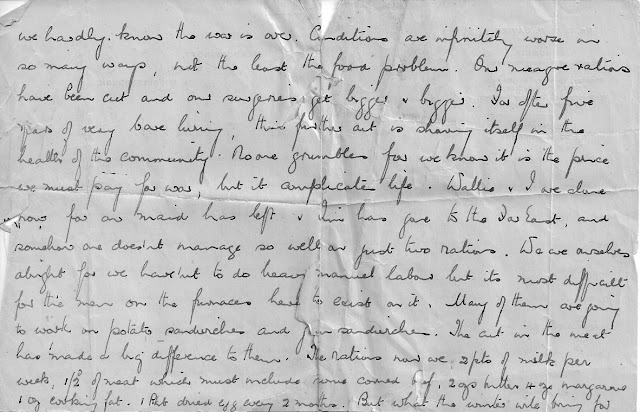 we hardly know the war is over. Conditions are infinitely worse in
so many ways, not the least the food problem. Our meagre rations
have been cut and our surgeries get bigger & bigger. For after five
years of very bare living, this further cut is showing itself in the
health of the community. No one grumbles for we know it is the price
we must pay for war, but it complicates life. Wallie & I are alone
now, for our maid has left & Jim has gone to the Far East, and
somehow one does'nt manage so well on just two rations. We are ourselves
alright for we have'nt to do heavy manuel labour but its most difficult
for the men on the furnaces have to exist on it. Many of them are going
to work on potato sandwiches and jam sandwiches. The cut in the meat
has made a big difference to them. The rations now are, 2 pts of milk per
week, 1/2 of meat which must include some corned beef, 2 ozs butter 4 oz margarine
1 oz cooking fat. 1 Pkt dried egg every 2 months. But what the winter will bring for